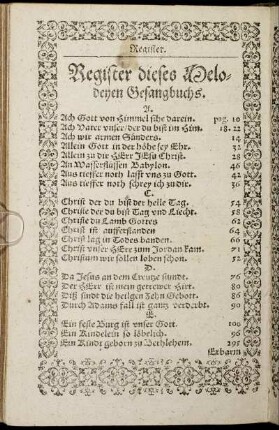 Register.
Register dieses Melo-
deyen Gesangbuchs.
A.
Ach Gott von Himmel sihe darein. pag. 10
Ach Vater unser/ der du bist im Him. 18. 22
Ach wir armen Sünders. 14
Allein Gott in der höhe sey Ehr. 32
Allein zu dir HErr JEsu Christ. 28
An Wasserflüssen Babylon. 46
Aus tieffer noth lasst uns zu Gott. 42
Aus tieffer noth schrey ich zu dir. 36
C.
Christ der du bist der helle Tag. 54
Christe der du bist Tag und Liecht. 58
Christe du Lamb Gottes 62
Christ ist aufferstanden 64
Christ lag in Todes banden. 60
Christ unser HErr zum Jordan kam. 71
Christum wir sollen loben schon. 52
D.
Da Jesus an dem Creutze stundt. 76
Der HErr ist mein getrewer Hirt. 80
Diß sindt die heilgen Zehn Gebott. 86
Durch Adams fall ist gantz verderbt. 90
E.
Ein feste Burg ist unser Gott. 100
Ein Kindelein so löbelich. 96
Ein Kindt geborn zu Bethlehem. 291
Erbarm